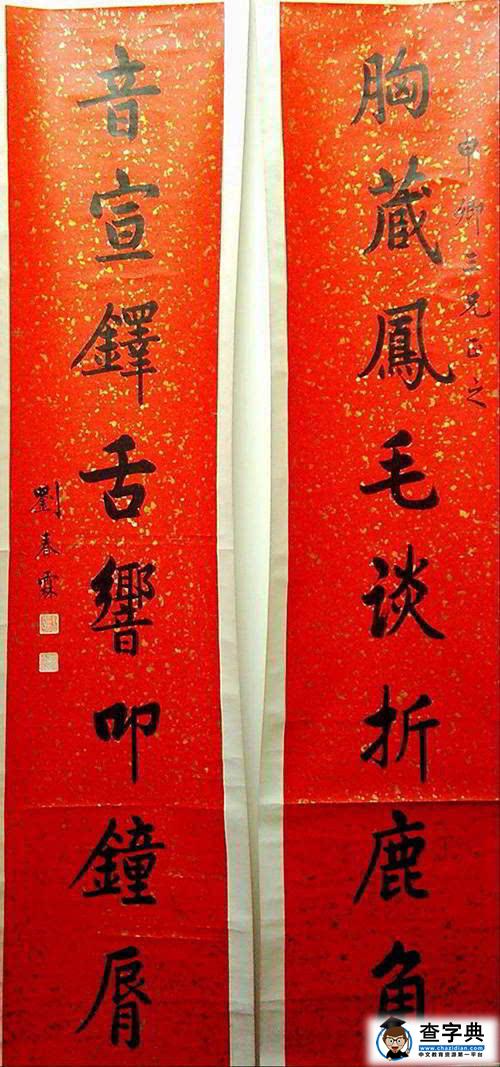 申卿三兄正之
胸藏鳳毛谈折鹿角
音宣鐸舌響叩鐘脣
劉春霖
查字典
www.chazidian.com
中文教育资源第一平台